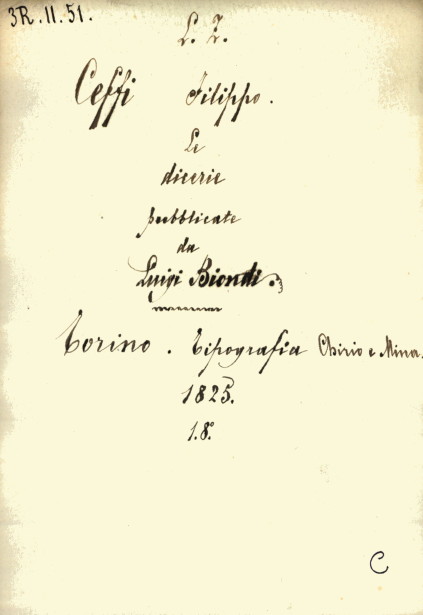 3R.II.51.
L. I.
Ceffi Filippo.
Le
dicerie
pubblicate
da
Luigi Biondi.
Torino. Tipografia Chirio e Mina.
1825.
1.8°
C